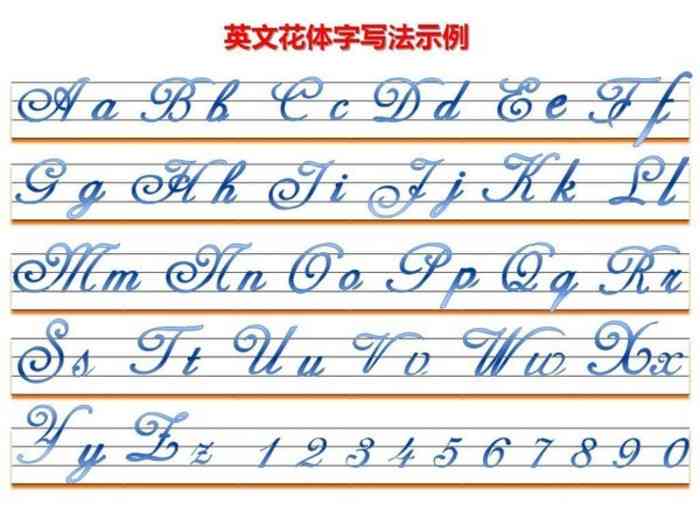 英文花体字写法示例
A a B b C c D d E e F f
G g H h I i J j K k L l
M m N n O o P p Q q R r
S s T t U u V v W w X x
Y y Z z 1 2 3 4 5 6 7 8 9 0